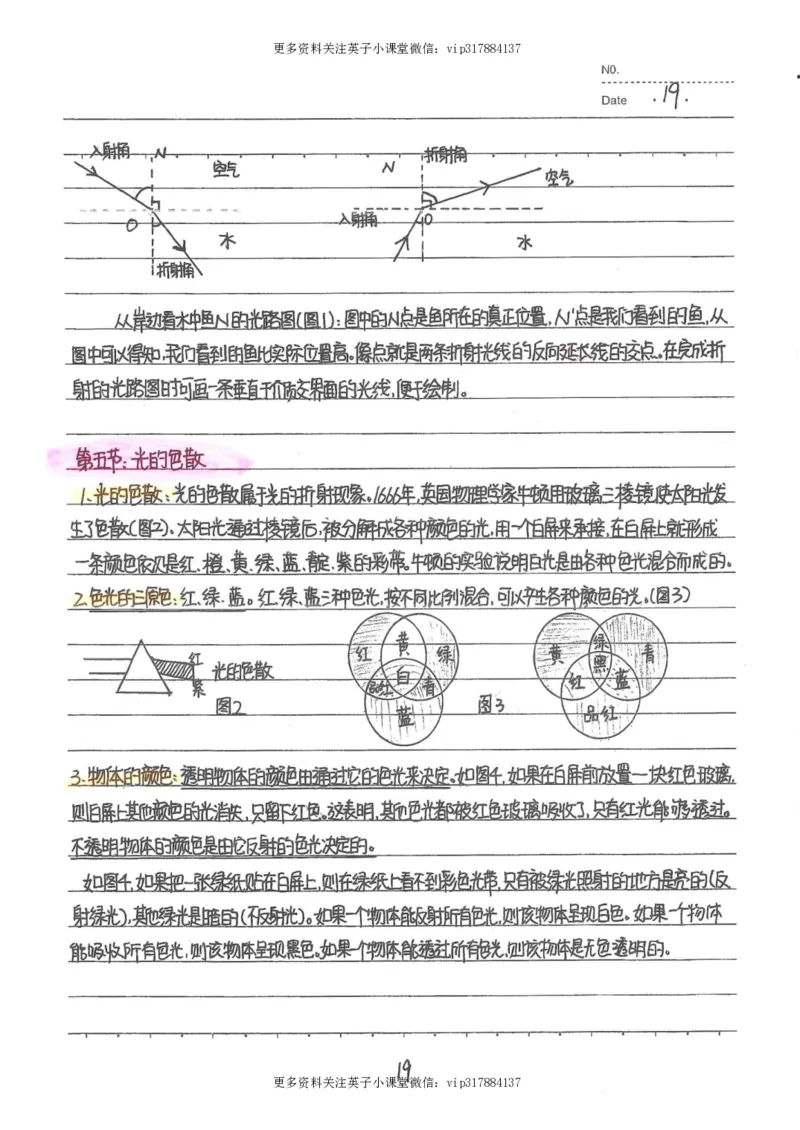 更多资料关注英子小课堂微信：vip317884137
NO.
Date .19.
入射角 N 空气 N 折射角 空气
O 水 入射角 O 水
折射角
从岸边看水中鱼N的光路图(图1)：图中的N点是鱼所在的真正位置，N'点是我们看到的鱼，从
图中可以得知，我们看到的鱼比实际位置高。像点就是两条折射光线的反向延长线的交点。在完成折
射的光路图时可画一条垂直于介质交界面的光线，便于绘制。
第五节：光的色散
1、光的色散：光的色散属于光的折射现象。1666年，英国物理学家牛顿用玻璃三棱镜使太阳光发
生了色散(图2)、太阳光通过棱镜后，被分解成各种颜色的光，用一个白屏来承接，在白屏上就形成
一条颜色依次是红、橙、黄、绿、蓝、靛、紫的彩带。牛顿的实验说明白光是由各种色光混合而成的。
2、色光的三原色：红、绿、蓝。红、绿、蓝三种色光，按不同比例混合，可以产生各种颜色的光。(图3)
红 紫 光的色散 图2
红 黄 绿 白 品红 青 蓝 图3
黄 绿 青 黑 红 蓝 品红
3、物体的颜色：透明物体的颜色由通过它的色光来决定。如图4，如果在白屏前放置一块红色玻璃，
则白屏上其他颜色的光消失，只留下红色。这表明，其他色光都被红色玻璃吸收了，只有红光能够透过。
不透明物体的颜色是由它反射的色光决定的。
如图4，如果把一张绿纸贴在白屏上，则在绿纸上看不到彩色光带，只有被绿光照射的地方是亮的(反
射绿光)，其他绿光是暗的(不反射光)。如果一个物体能反射所有色光，则该物体呈现白色。如果一个物体
能吸收所有色光，则该物体呈现黑色。如果一个物体能透过所有色光，则该物体是无色透明的。
19
更多资料关注英子小课堂微信：vip317884137